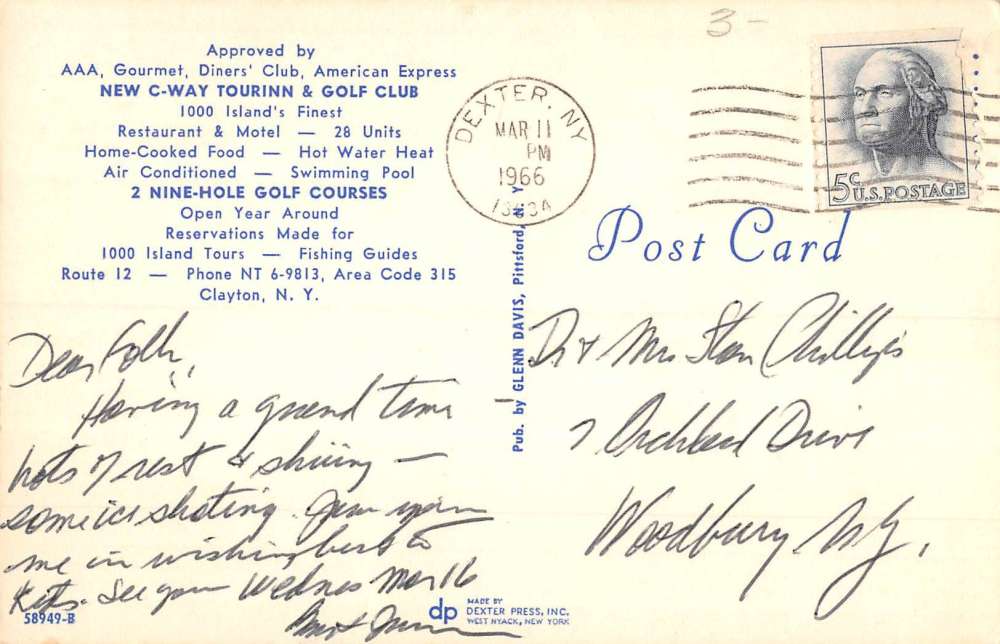 3-
Approved by
AAA, Gourmet, Diners' Club, American Express
NEW C-WAY TOURINN & GOLF CLUB
1000 Island's Finest
Restaurant & Motel — 28 Units
Home-Cooked Food — Hot Water Heat
Air Conditioned — Swimming Pool
2 NINE-HOLE GOLF COURSES
Open Year Around
Reservations Made for
1000 Island Tours — Fishing Guides
Route 12 — Phone NT 6-9813, Area Code 315
Clayton, N. Y.
DEXTER, NY
MAR 11
PM
1966
5c U.S. POSTAGE
Post Card
Pub. by GLENN DAVIS, Pittsford, N. Y.
Dear Folks,
Having a grand time
lots of rest & skiing —
some ice skating.
me in wishing best to
Kids. See you Wednes Mar 16
Dr & Mrs Stan Phillips
7 Drive
Woodbury NJ,
58949-B
dp MADE BY
DEXTER PRESS, INC.
WEST NYACK, NEW YORK